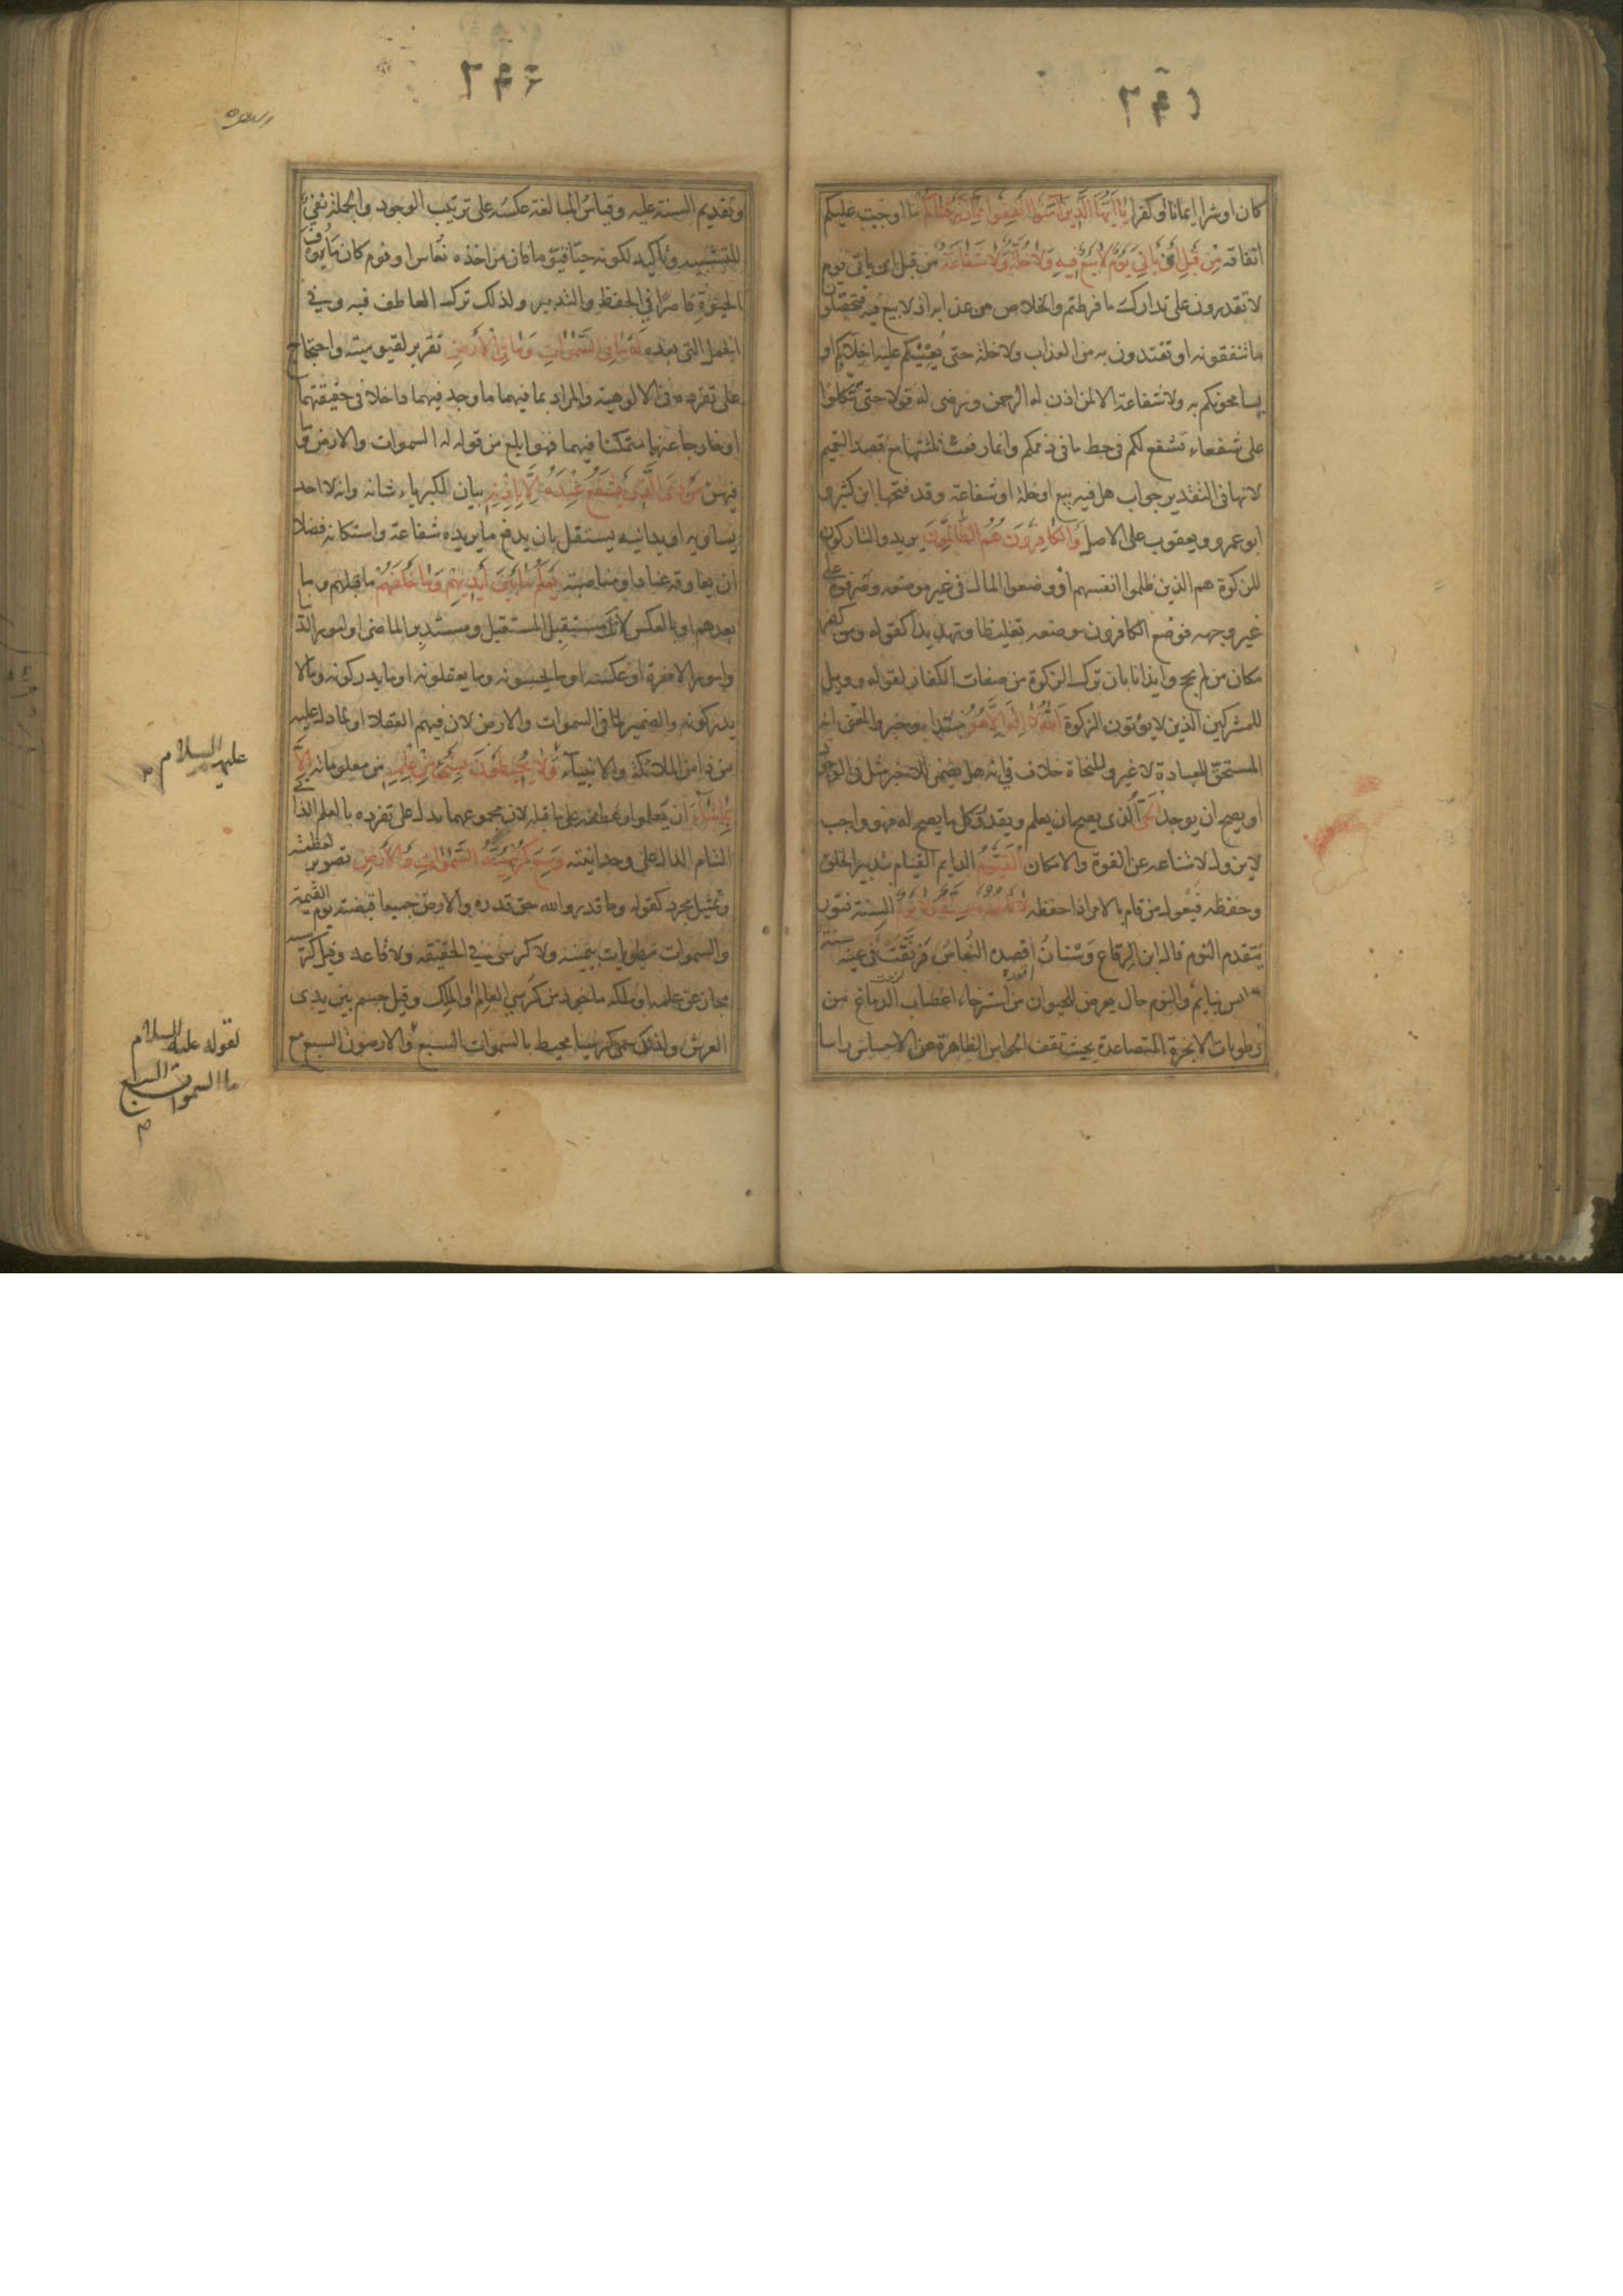 كان او شرا ايمانا او كفرا يا ايها الذين آمنوا انفقوا مما رزقناكم ما اوجبت عليكم
انفاقه من قبل ان ياتي يوم لا بيع فيه ولا خلة ولا شفاعة من قبل ان ياتي يوم
لا تقدرون على تدارك ما فرطتم والخلاص من عذابه اذ لا بيع فيه فتحصلون
ما تنفقونه او تفتدون به من العذاب ولا خلة حتى يعينكم عليه اخلاؤكم او
يسامحونكم به ولا شفاعة الا لمن اذن له الرحمن ورضى له قولا حتى تتكلوا
على شفعاء تشفع لكم في حط ما في ذممكم وانما رفعت ثلثتها مع قصد التعميم
لانها في التقدير جواب هل فيه بيع او خلة او شفاعة وقد فتحها ابن كثير و
ابو عمرو ويعقوب على الاصل والكافرون هم الظالمون يريد والتاركون
للزكوة هم الذين ظلموا انفسهم او وضعوا المال في غير موضعه وصرفوه على
غير وجهه فوضع الكافرون موضعه تغليظا وتهديدا كقوله ومن كفر
مكان من لم يحج وايذانا بان ترك الزكوة من صفات الكفار لقوله وويل
للمشركين الذين لا يؤتون الزكوة الله لا اله الا هو مبتدا وخبر والمعنى انه
المستحق للعبادة لا غير وللنحاة خلاف في انه هل يضمر للا خبر مثل في الوجود
او يصح ان يوجد الحي الذي يصح ان يعلم ويقدر وكل ما يصح له فهو واجب
لا يزول لامتناعه عن القوة والامكان القيوم الدايم القيام بتدبير الخلق
وحفظه فيعول من قام بالامر اذا حفظه لا تاخذه سنة ولا نوم السنة فتور
يتقدم النوم قال ابن الرقاع وسنان اقصده النعاس فرنقت في عينه سنة
وليس بنايم والنوم حال يعرض للحيوان من استرخاء اعصاب الدماغ من
رطوبات الابخرة المتصاعدة بحيث تقف الحواس الظاهرة عن الاحساس راسا
وتقديم السنة عليه وقياس المبالغة عكسه على ترتيب الوجود والجملة نفي
للتشبيه وتاكيد لكونه حيا قيوما فان من اخذه نعاس او نوم كان مأوف
الحيوة قاصرا في الحفظ والتدبير ولذلك ترك العاطف فيه وفي
الجمل التي بعده له ما في السموات وما في الارض تقرير لقيوميته واحتجاج
على تفرده في الالوهية والمراد بما فيهما ما وجد فيهما داخلا في حقيقتهما
او خارجا عنهما متمكنا فيهما فهو ابلغ من قوله له السموات والارض وما
فيهن من ذا الذي يشفع عنده الا باذنه بيان لكبرياء شانه وانه لا احد
يساويه او يدانيه يستقل بان يدفع ما يريده شفاعة واستكانة فضلا
ان يعاوقه عنادا ومناصبة يعلم ما بين ايديهم وما خلفهم ما قبلهم وما
بعدهم او بالعكس لانك مستقبل المستقبل ومستدبر الماضى او امور الدنيا
وامور الاخرة او عكسه او ما يحسونه وما يعقلونه او ما يدركونه وما لا
يدركونه والضمير لما في السموات والارض لان فيهم العقلا او لما دل عليه
من ذا من الملائكة والانبياء ولا يحيطون بشئ من علمه من معلوماته الا
بما شاء ان يعلموا وعطفه على ما قبله لان مجموعهما يدل على تفرده بالعلم الذاتي
التام الدال على وحدانيته وسع كرسيه السموات والارض تصوير لعظمته
وتمثيل مجرد كقوله وما قدروا الله حق قدره والارض جميعا قبضته يوم القيمة
والسموات مطويات بيمينه ولا كرسي في الحقيقه ولا قاعد وقيل كرسيه
مجاز عن علمه او ملكه ماخوذ من كرسي العالم والملك وقيل جسم بين يدى
العرش ولذلك سمى كرسيا محيط بالسموات السبع والارضون السبع مع
عليهم السلام
لقوله عليه السلام
ما السموات السبع